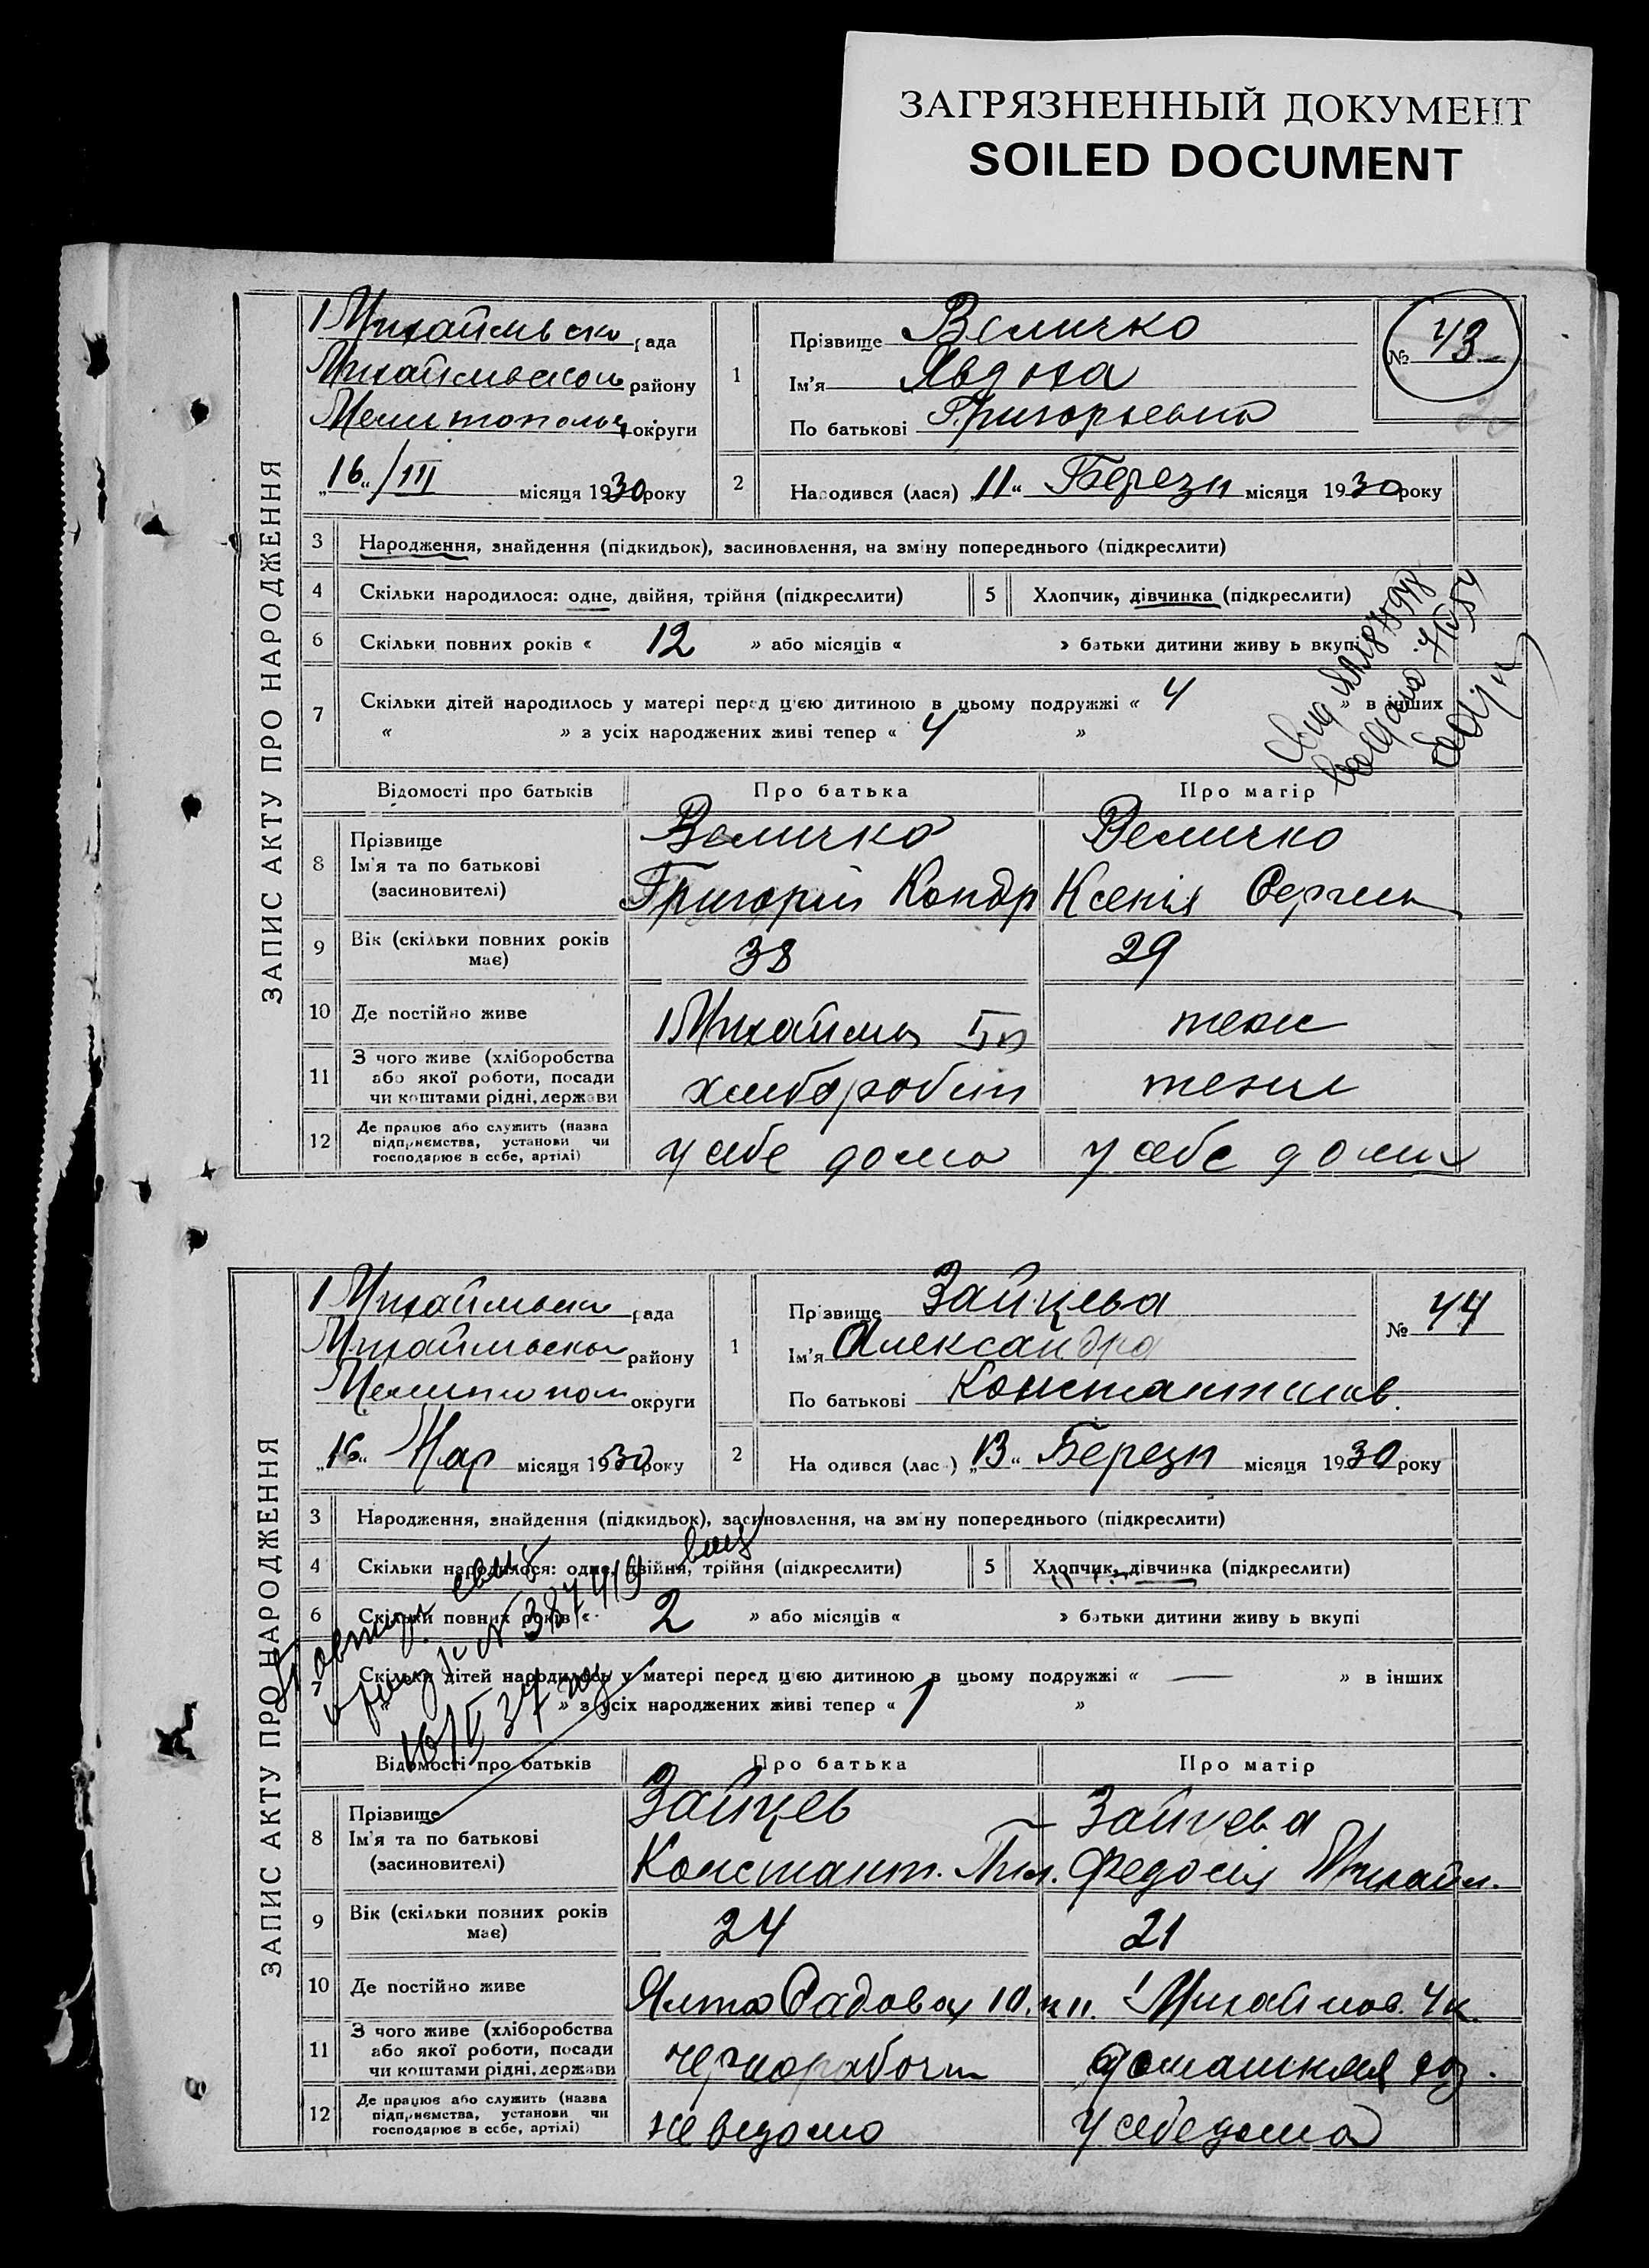 ЗАГРЯЗНЕННЫЙ ДОКУМЕНТ
SOILED DOCUMENT
ЗАПИС АКТУ ПРО НАРОДЖЕННЯ
рада
району
округи
„16“/III місяця 1930 року
1
Прізвище Величко
Ім'я Явдоха
По батькові Григорьевна
№ 43
2
Народився (лася) „11“ Березн місяця 1930 року
3 Народження, знайдення (підкидьок), засиновлення, на зміну попереднього (підкреслити)
4 Скільки народилося: одне, двійня, трійня (підкреслити)
5 Хлопчик, дівчинка (підкреслити)
6 Скільки повних років « 12 » або місяців « » батьки дитини живуть вкупі
7 Скільки дітей народилось у матері перед цією дитиною в цьому подружжі « 4 » в інших
« » з усіх народжених живі тепер « 4 »
Відомості про батьків Про батька Про матір
8 Прізвище Величко Величко
Ім'я та по батькові Григорій Кондр Ксенія
(засиновителі)
9 Вік (скільки повних років має) 38 29
10 Де постійно живе
11 З чого живе (хліборобства або якої роботи, посади чи коштами рідні, держави
хлібороб
12 Де працює або служить (назва підприємства, установи чи господарює в себе, артілі)
у себе дома у себе дома
ЗАПИС АКТУ ПРО НАРОДЖЕННЯ
рада
району
округи
„16“ Мар місяця 1930 року
1
Прізвище Зайцева
Ім'я Александра
По батькові Константинов.
№ 44
2
Народився (лас ) „13“ Березн місяця 1930 року
3 Народження, знайдення (підкидьок), засиновлення, на зміну попереднього (підкреслити)
4 Скільки народилося: одне, двійня, трійня (підкреслити)
5 Хлопчик, дівчинка (підкреслити)
6 Скільки повних років « 2 » або місяців « » батьки дитини живуть вкупі
7 Скільки дітей народилось у матері перед цією дитиною в цьому подружжі « — » в інших
« » з усіх народжених живі тепер « 1 »
Відомості про батьків Про батька Про матір
8 Прізвище Зайцев Зайцева
Ім'я та по батькові Констант. Федосія Михайл.
(засиновителі)
9 Вік (скільки повних років має) 24 21
10 Де постійно живе Ялта Садовая 10.
11 З чого живе (хліборобства або якої роботи, посади чи коштами рідні, держави
чернорабоч домашняя хоз.
12 Де працює або служить (назва підприємства, установи чи господарює в себе, артілі)
невідомо у себе дома